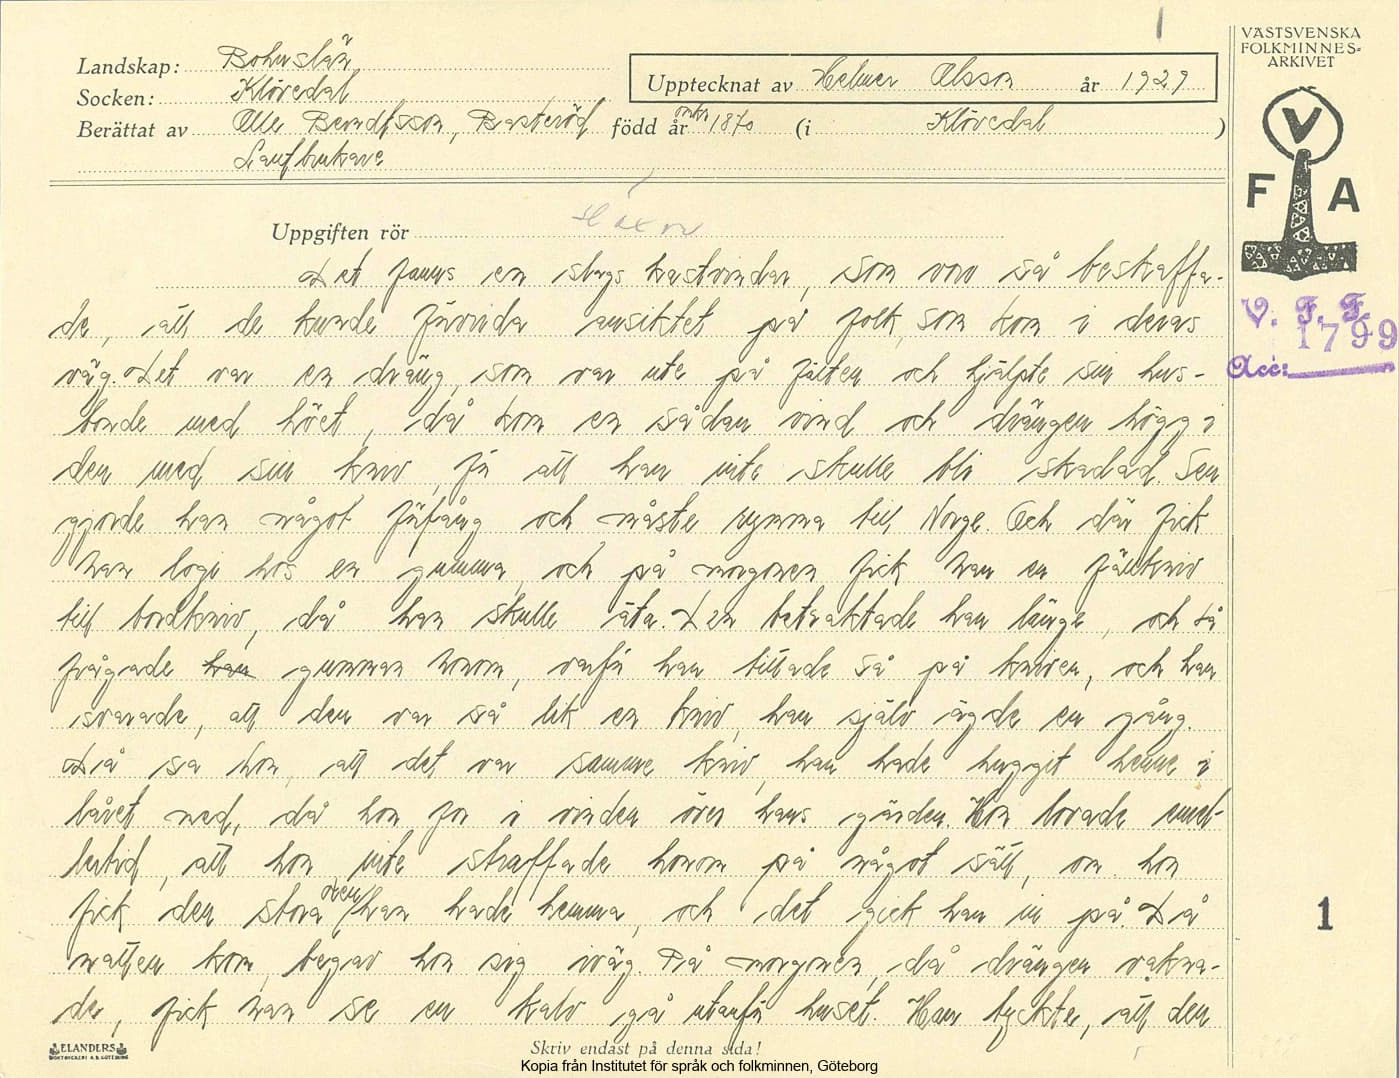 VÄSTSVENSKA
FOLKMINNES-
ARKIVET
Landskap: Bohuslän
Upptecknat av Helmer Olsson år 1929
Socken: Klövedal
Berättat av Olle Berndtsson, Basteröd född år omkr 1870 (i Klövedal)
Lantbrukare
V
F A
Uppgiften rör Häxor
Det fanns en slags kastvindar, som voro så beskaffa-
de, att de kunde förvrida ansiktet på folk, som kom i deras
väg. Det var en dräng, som var ute på fälten och hjälpte sin hus-
bonde med höet, då kom en sådan vind och drängen högg i
den med sin kniv, för att han inte skulle bli skadad. Sen
gjorde han något förfång och måste rymma till Norge. Och där fick
han logi hos en gumma, och på morgonen fick han en fällkniv
till bordkniv, då han skulle äta. Den betraktade han länge, och så
frågade han gumman honom, varför han tittade så på kniven, och han
svarade, att den var så lik en kniv, han själv ägde en gång.
Då sa hon, att det var samme kniv, han hade huggit henne i
låret med, då hon for i vinden över hans gärden. Hon lovade emel-
lertid, att hon inte straffade honom på något sätt, om hon
fick den stora oxen han hade hemma, och det gick han in på. Då
natten kom, begav hon sig iväg. På morgonen, då drängen vakna-
de, fick han se en kalv gå utanför huset. Han tyckte, att den
V. F. F.
1799
Acc:
1
ELANDERS
BOKTRYCKERI A.B. GÖTEBORG
Skriv endast på denna sida!
Kopia från Institutet för språk och folkminnen, Göteborg